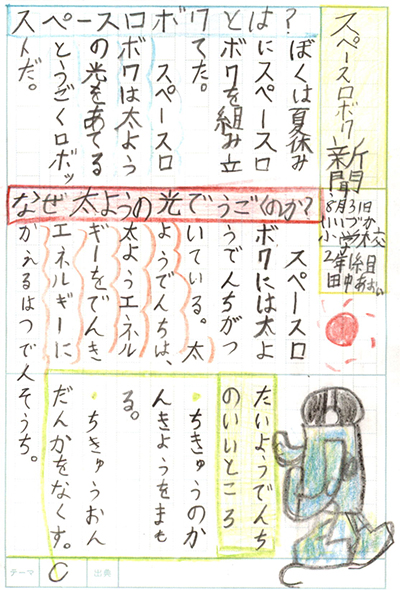 スペースロボワ新聞
8月31日
いいづか
小学校
2年組
田中あおい
スペースロボワとは？
ぼくは夏休み
にスペースロ
ボワを組み立
てた。
スペースロ
ボワは太よう
の光をあてる
とうごくロボッ
トだ。
なぜ太ようの光でうごくのか？
スペースロ
ボワには太よ
うでんちがつ
いている。太
ようでんちは、
太ようエネル
ギーをでんき
エネルギーに
かえるはつでんそうち。
たいようでんち
のいいところ
・ちきゅうのか
んきようをまも
る。
・ちきゅうおん
だんかをなくす。
テーマ
出典